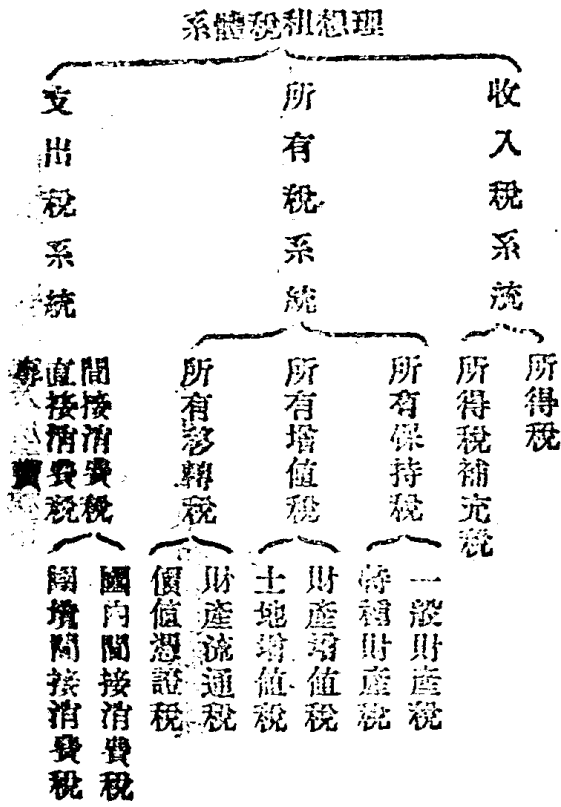 理想租税體系
收入税系統
所得税
所得税補充税
所有税系統
所有保持税
一般財産税
特種財産税
所有增值税
財産增值税
土地增值税
所有移轉税
財産流通税
價值憑證税
支出税系統
間接消費税
國内間接消費税
國境間接消費税
直接消費税
專賣